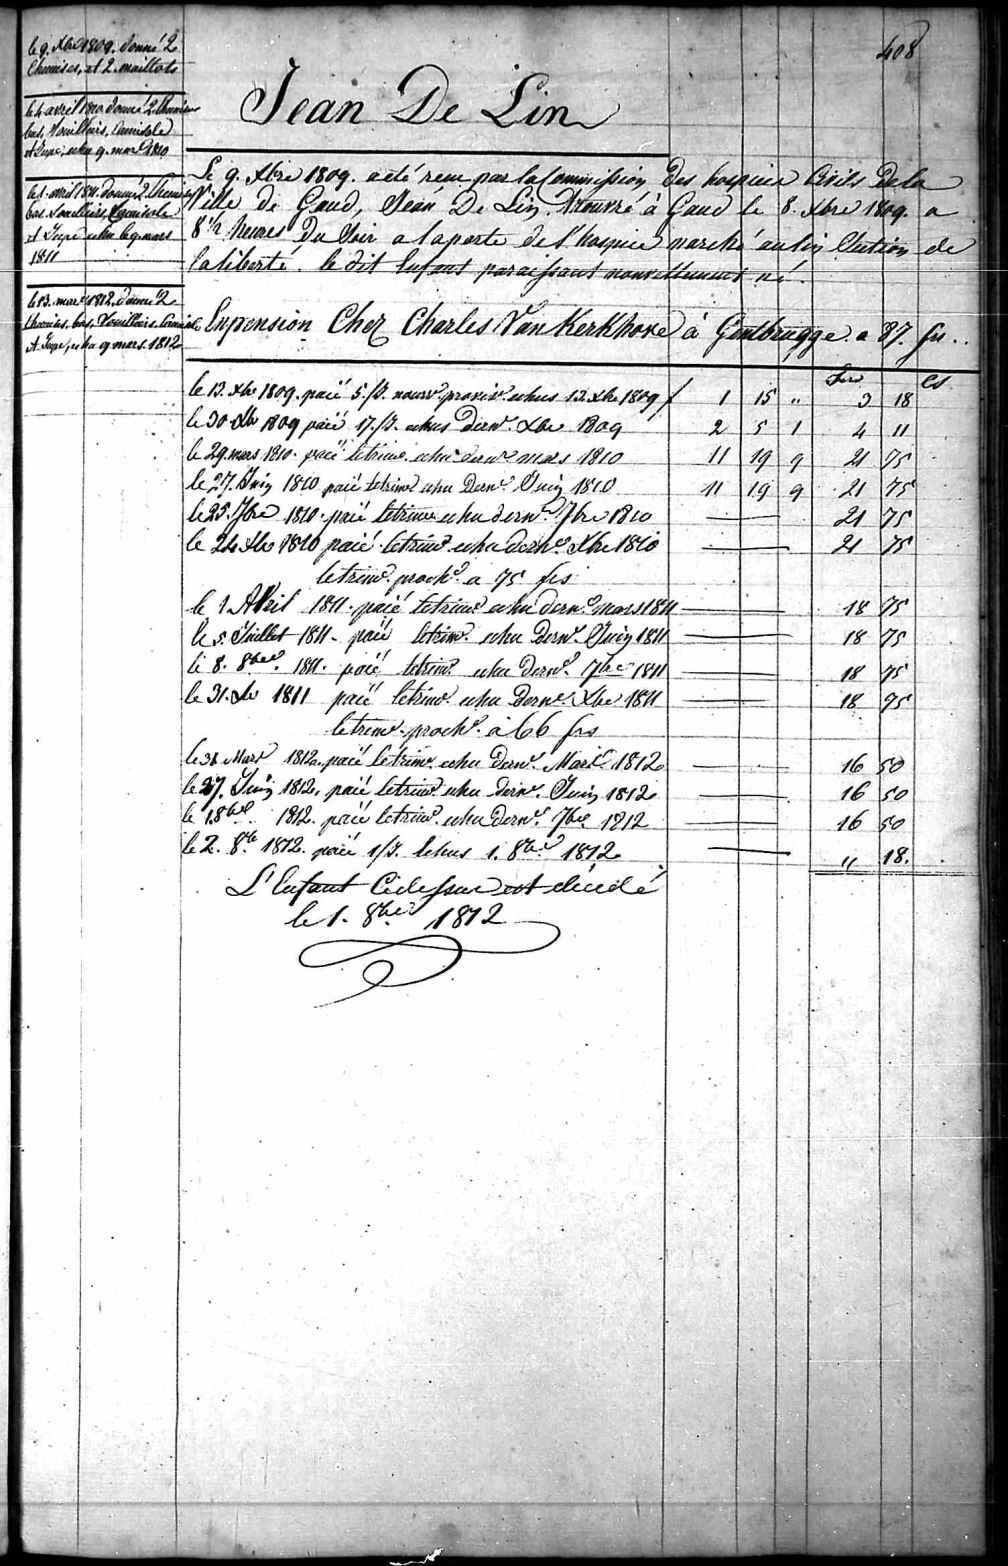 408
le 9. Xbre 1809. donné 2
Chemises, et 2. maillots
le 4 avril 1810 donné 2 Chemises
bas, Souilliers, Camisole
et Jupe, echu 9. mars 1810
le 1. avril 1811. donné 2 Chemises
bas. Souilliers, Camisole
et Jupe echu le 9 mars
1811
le 13. mars 1812. donné 2
Chemises, bas, Souilliers. Camisole
et Jupe, echu 9 mars. 1812
Jean De Lin
Le 9. Xbre 1809. a été reçu par la Commission des hospices Civils de la
Ville de Gand, Jean De Lin. trouvé à Gand le 8. Xbre 1809. a
8 1/2 heures du Soir a la porte de l'hospice marché au lin Section de
la liberté. le dit Enfant paraissant nouvellement né.
En pension Chez Charles Van Kerkhove à Gentbrugge a 87. frs..
frs cs
le 13. Xbr 1809. paié 5./J. nourr. provis. echus 12 Xbr 1809 f 1 15 " 3 18
le 30 Xbr 1809 paié 17./J. echus dern. Xbr 1809 2 5 1 4 11
le 29. mars 1810. paié le trim. echu dern. mars 1810 11 19 9 21 75
le 27. Juin 1810 paié le trim. echu dern. Juin 1810 11 19 9 21 75
le 25. 7bre 1810. paié le trim. echu dern. 7bre 1810 — 21 75
le 24 Xbr 1810 paié. le trim. echu dern. Xbr 1810 — 21 75
le trim. proch. a 75 frs
le 1 Avril 1811. paié le trim. echu dern. mars 1811 — 18 75
le 5. Juillet 1811. paié le trim. echu dern. Juin 1811 — 18 75
le 8. 8bre. 1811. paié le trim. echu dern. 7bre 1811 — 18 75
le 31. Xbr 1811 paié le trim. echu dern. Xbr 1811 — 18 75
le trim. proch. à 66 frs
le 31 Mars 1812. paié le trim. echu dern. Mars 1812 — 16 50
le 27. Juin 1812. paié le trim. echu dern. Juin 1812 — 16 50
le 1. 8bre. 1812. paié le trim. echu dern. 7bre 1812 — 16 50
le 2. 8bre 1812. paié 1/J. echus 1. 8bre 1812 — " 18.
L'Enfant Cidessus est décédé
le 1. 8bre 1812